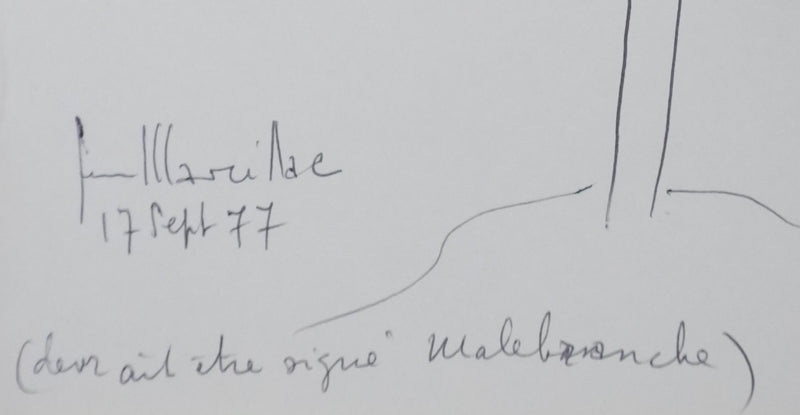 Jean Marcillac
17 Sept 77
(devrait être signé Malebranche)